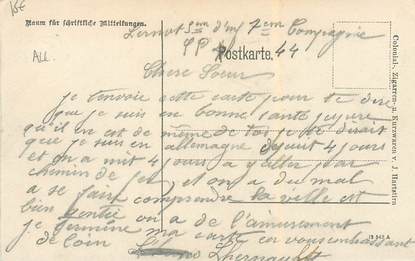 15€
ALL
Raum für schriftliche Mitteilungen.
7em Compagnie
SP 44
Postkarte.
Chere Soeur
je tenvoie cette carte pour te dire
que je suis en bonne santé
qu'il en est de même de toi je te dirait
que je suis en allemagne depuit 4 jours
et on a mit 4 jours a y aller par
chemin de fer et on a du mal
a se faire comprendre la ville est
bien gentie on a de l'amusement
je termine ma carte en vous embrassant
de loin
Colonial-, Zigarren- u. Kurzwaren v. J. Hartstirn